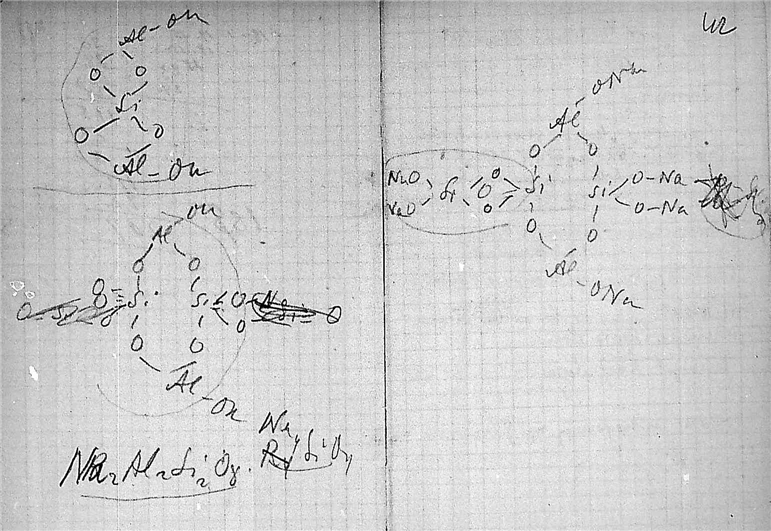 42
Al-OH
O O
Si
O O
Al-OH
OH
Al
O O
O Si Si O Na
O O
O O
Al
OH
Na
Na₂Al₂Si₂O₈. R₄SiO₄
ONa
Al
O O
NaO O
Si O Si Si O-Na
NaO O O-Na
O O
Al
ONa